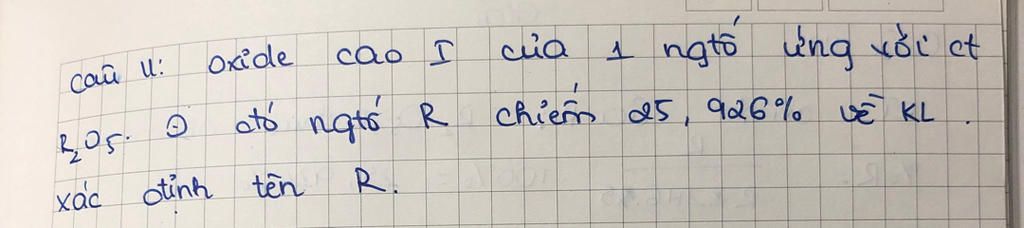 câu 4: oxide cao I của 1 ngtố ứng với ct
R₂O5. ⊖ đó ngtố R chiếm 25,926% về KL.
xác định tên R.